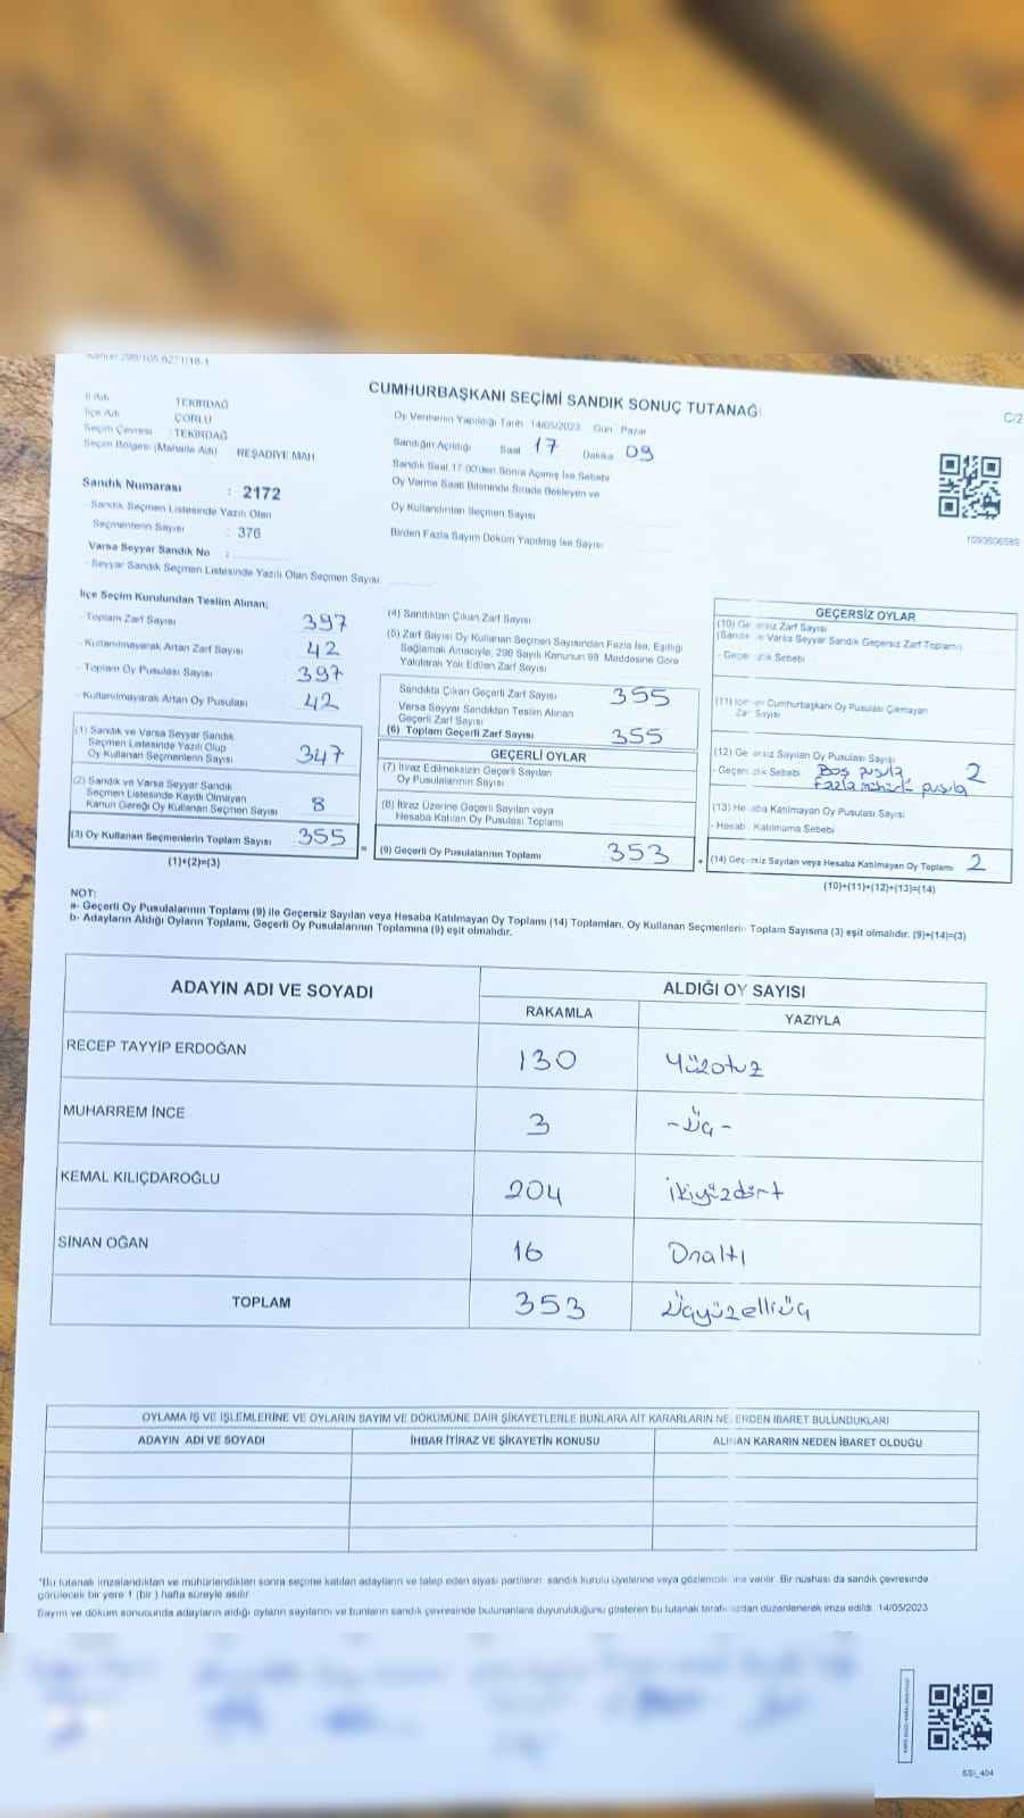 CUMHURBAŞKANI SEÇİMİ SANDIK SONUÇ TUTANAĞI
C/2
İl Adı TEKİRDAĞ
İlçe Adı ÇORLU
Seçim Çevresi : TEKİRDAĞ
Seçim Bölgesi (Mahalle Adı) REŞADİYE MAH.
Oy Vermenin Yapıldığı Tarih 14/05/2023 Gün : Pazar
Sandığın Açıldığı Saat 17 Dakika 09
Sandık Saat 17.00'den Sonra Açılmış İse Sebebi
Oy Verme Saati Bitiminde Sırada Bekleyen ve
Oy Kullandırılan Seçmen Sayısı
Birden Fazla Sayım Döküm Yapılmış İse Sayısı
Sandık Numarası : 2172
- Sandık Seçmen Listesinde Yazılı Olan
Seçmenlerin Sayısı : 376
Varsa Seyyar Sandık No :
- Seyyar Sandık Seçmen Listesinde Yazılı Olan Seçmen Sayısı
İlçe Seçim Kurulundan Teslim Alınan;
- Toplam Zarf Sayısı 397
- Kullanılmayarak Artan Zarf Sayısı 42
- Toplam Oy Pusulası Sayısı 397
- Kullanılmayarak Artan Oy Pusulası 42
(1) Sandık ve Varsa Seyyar Sandık
Seçmen Listesinde Yazılı Olup
Oy Kullanan Seçmenlerin Sayısı 347
(2) Sandık ve Varsa Seyyar Sandık
Seçmen Listesinde Kayıtlı Olmayan
Kanun Gereği Oy Kullanan Seçmen Sayısı 8
(3) Oy Kullanan Seçmenlerin Toplam Sayısı 355
(1)+(2)=(3)
(4) Sandıktan Çıkan Zarf Sayısı
(5) Zarf Sayısı Oy Kullanan Seçmen Sayısından Fazla İse, Eşitliği
Sağlamak Amacıyla, 298 Sayılı Kanunun 98. Maddesine Göre
Yakılarak Yok Edilen Zarf Sayısı
Sandıkta Çıkan Geçerli Zarf Sayısı 355
Varsa Seyyar Sandıktan Teslim Alınan
Geçerli Zarf Sayısı
(6) Toplam Geçerli Zarf Sayısı 355
GEÇERLİ OYLAR
(7) İtiraz Edilmeksizin Geçerli Sayılan
Oy Pusulalarının Sayısı
(8) İtiraz Üzerine Geçerli Sayılan veya
Hesaba Katılan Oy Pusulası Toplamı
= (9) Geçerli Oy Pusulalarının Toplamı 353
GEÇERSİZ OYLAR
Zarf Sayısı
Varsa Seyyar Sandık Geçersiz Zarf Toplamı)
Sebebi
Cumhurbaşkanı Oy Pusulası Çıkmayan
Sayısı
Sayılan Oy Pusulası Sayısı 2
Sebebi Boş pusula,
Fazla mühürlü pusula
Katılmayan Oy Pusulası Sayısı
Katılmama Sebebi
Sayılan veya Hesaba Katılmayan Oy Toplamı 2
(10)+(11)+(12)+(13)=(14)
NOT:
a- Geçerli Oy Pusulalarının Toplamı (9) ile Geçersiz Sayılan veya Hesaba Katılmayan Oy Toplamı (14) Toplamları, Oy Kullanan Seçmenlerin Toplam Sayısına (3) eşit olmalıdır. (9)+(14)=(3)
b- Adayların Aldığı Oyların Toplamı, Geçerli Oy Pusulalarının Toplamına (9) eşit olmalıdır.
ADAYIN ADI VE SOYADI
ALDIĞI OY SAYISI
RAKAMLA YAZIYLA
RECEP TAYYİP ERDOĞAN 130 Yüzotuz
MUHARREM İNCE 3 -Üç-
KEMAL KILIÇDAROĞLU 204 İkiyüzdört
SİNAN OĞAN 16 Onaltı
TOPLAM 353 Üçyüzelliüç
OYLAMA İŞ VE İŞLEMLERİNE VE OYLARIN SAYIM VE DÖKÜMÜNE DAİR ŞİKAYETLERLE BUNLARA AİT KARARLARIN İBARET BULUNDUKLARI
ADAYIN ADI VE SOYADI İHBAR İTİRAZ VE ŞİKAYETİN KONUSU ALINAN KARARIN NEDEN İBARET OLDUĞU
*Bu tutanak imzalandıktan ve mühürlendikten sonra seçime katılan adayların ve talep eden siyasi partilerin sandık kurulu üyelerine veya verilir. Bir nüshası da sandık çevresinde
görülecek bir yere 1 (bir) hafta süreyle asılır.
Sayım ve döküm sonucunda adayların aldığı oyların sayılarını ve bunların sandık çevresinde bulunanlara duyurulduğunu gösteren bu tutanak düzenlenerek imza edildi. 14/05/2023